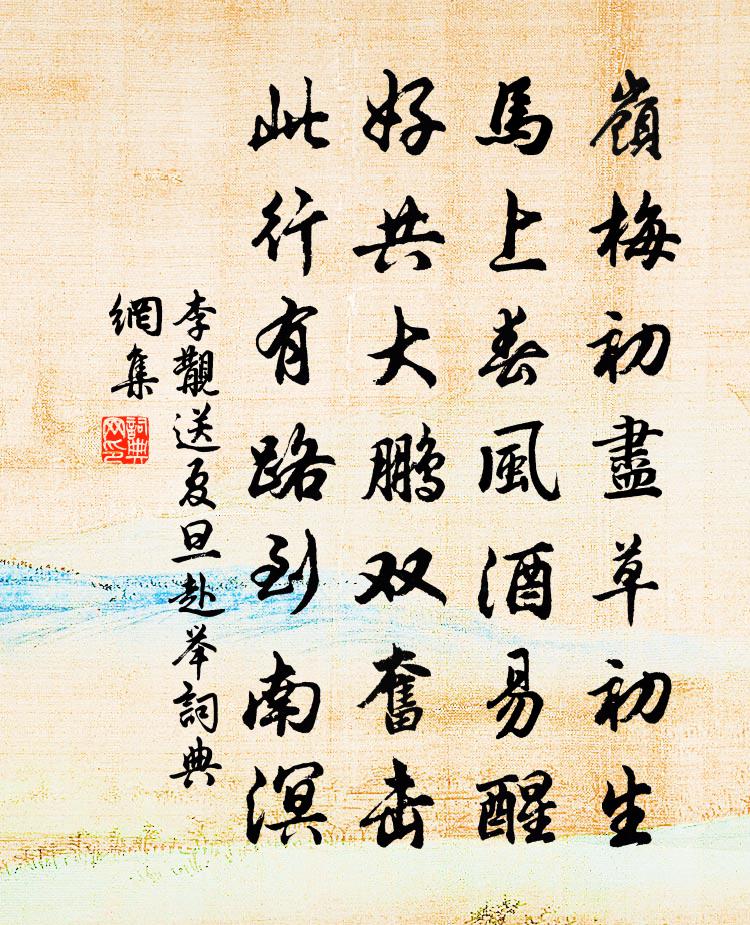 嶺梅初盡草初生
馬上春風酒易醒
好共大鹏双奮击
此行有路到南溟
李觀送夏旦赴举詞典
網集
詞典网印